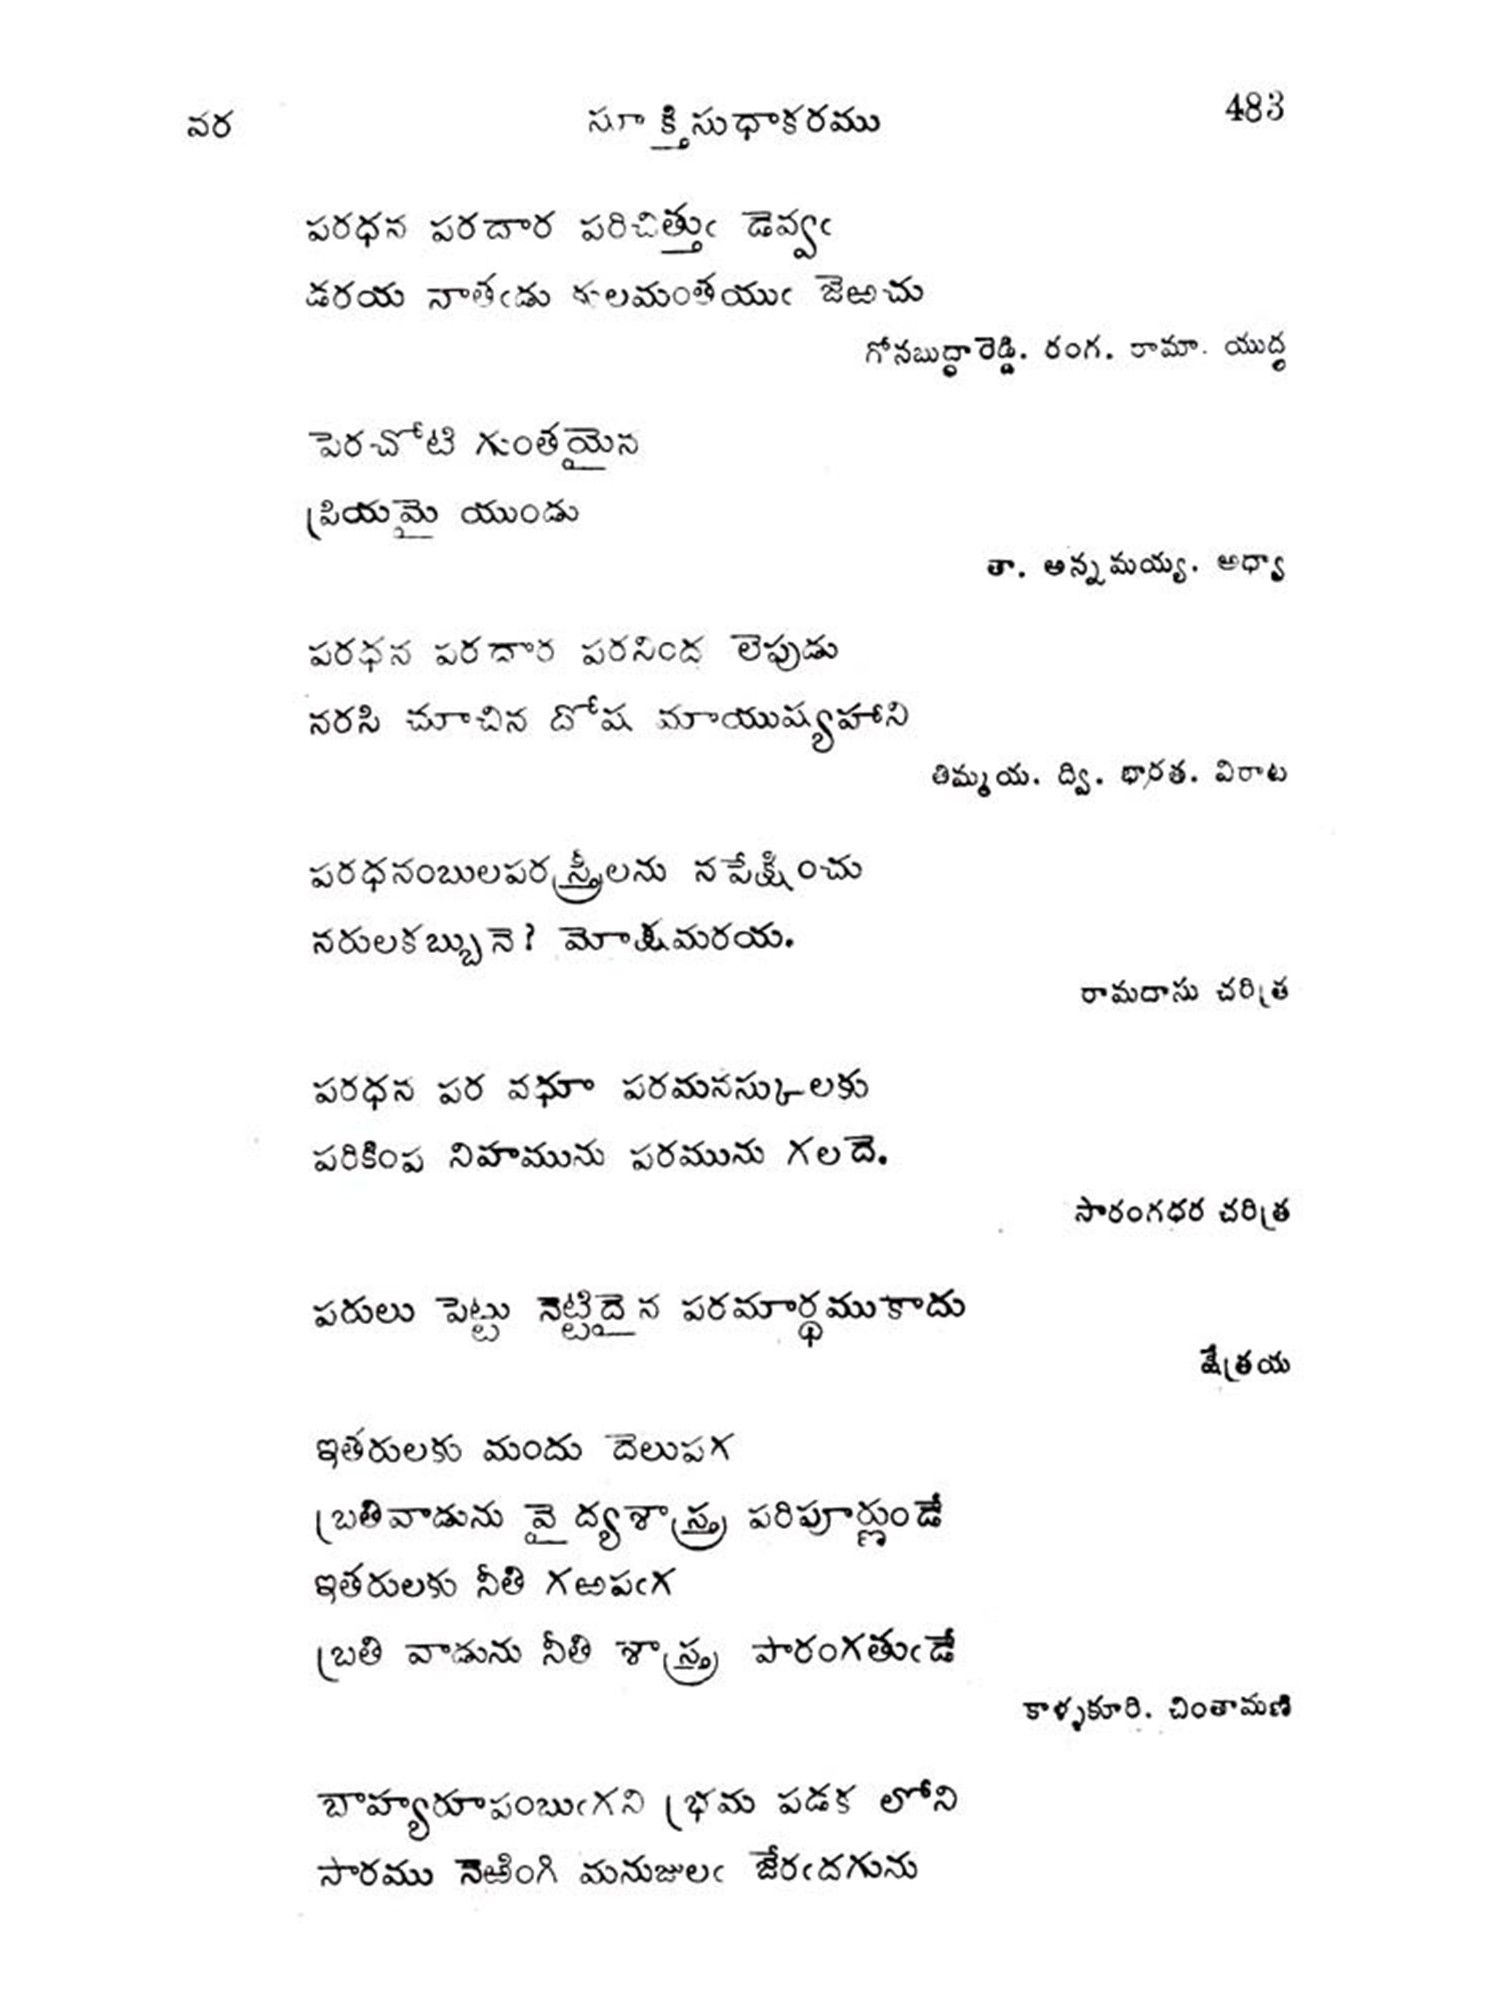 వర సూక్తిసుధాకరము 483
పరధన పరదార పరిచిత్తుఁ డెవ్వఁ
డరయ నాతఁడు కులమంతయుఁ జెఱచు
గోనబుద్ధారెడ్డి. రంగ. రామా. యుద్ధ
పెరచోటి గుంతయైన
ప్రియమై యుండు
తా. అన్నమయ్య. అధ్యా
పరధన పరదార పరనింద లెపుడు
నరసి చూచిన దోష మాయుష్యహాని
తిమ్మయ. ద్వి. భారత. విరాట
పరధనంబులపరస్త్రీలను నపేక్షించు
నరులకబ్బునె? మోక్షమరయ.
రామదాసు చరిత్ర
పరధన పర వధూ పరమనస్కులకు
పరికింప నిహమును పరమును గలదె.
సారంగధర చరిత్ర
పరులు పెట్టు నెట్టిదైన పరమార్థముకాదు
క్షేత్రయ
ఇతరులకు మందు దెలుపగ
బ్రతివాడును వైద్యశాస్త్ర పరిపూర్ణుండే
ఇతరులకు నీతి గఱపఁగ
బ్రతి వాడును నీతి శాస్త్ర పారంగతుఁడే
కాళ్ళకూరి. చింతామణి
బాహ్యరూపంబుఁగని భ్రమ పడక లోని
సారము నెఱింగి మనుజులఁ జేరఁదగును